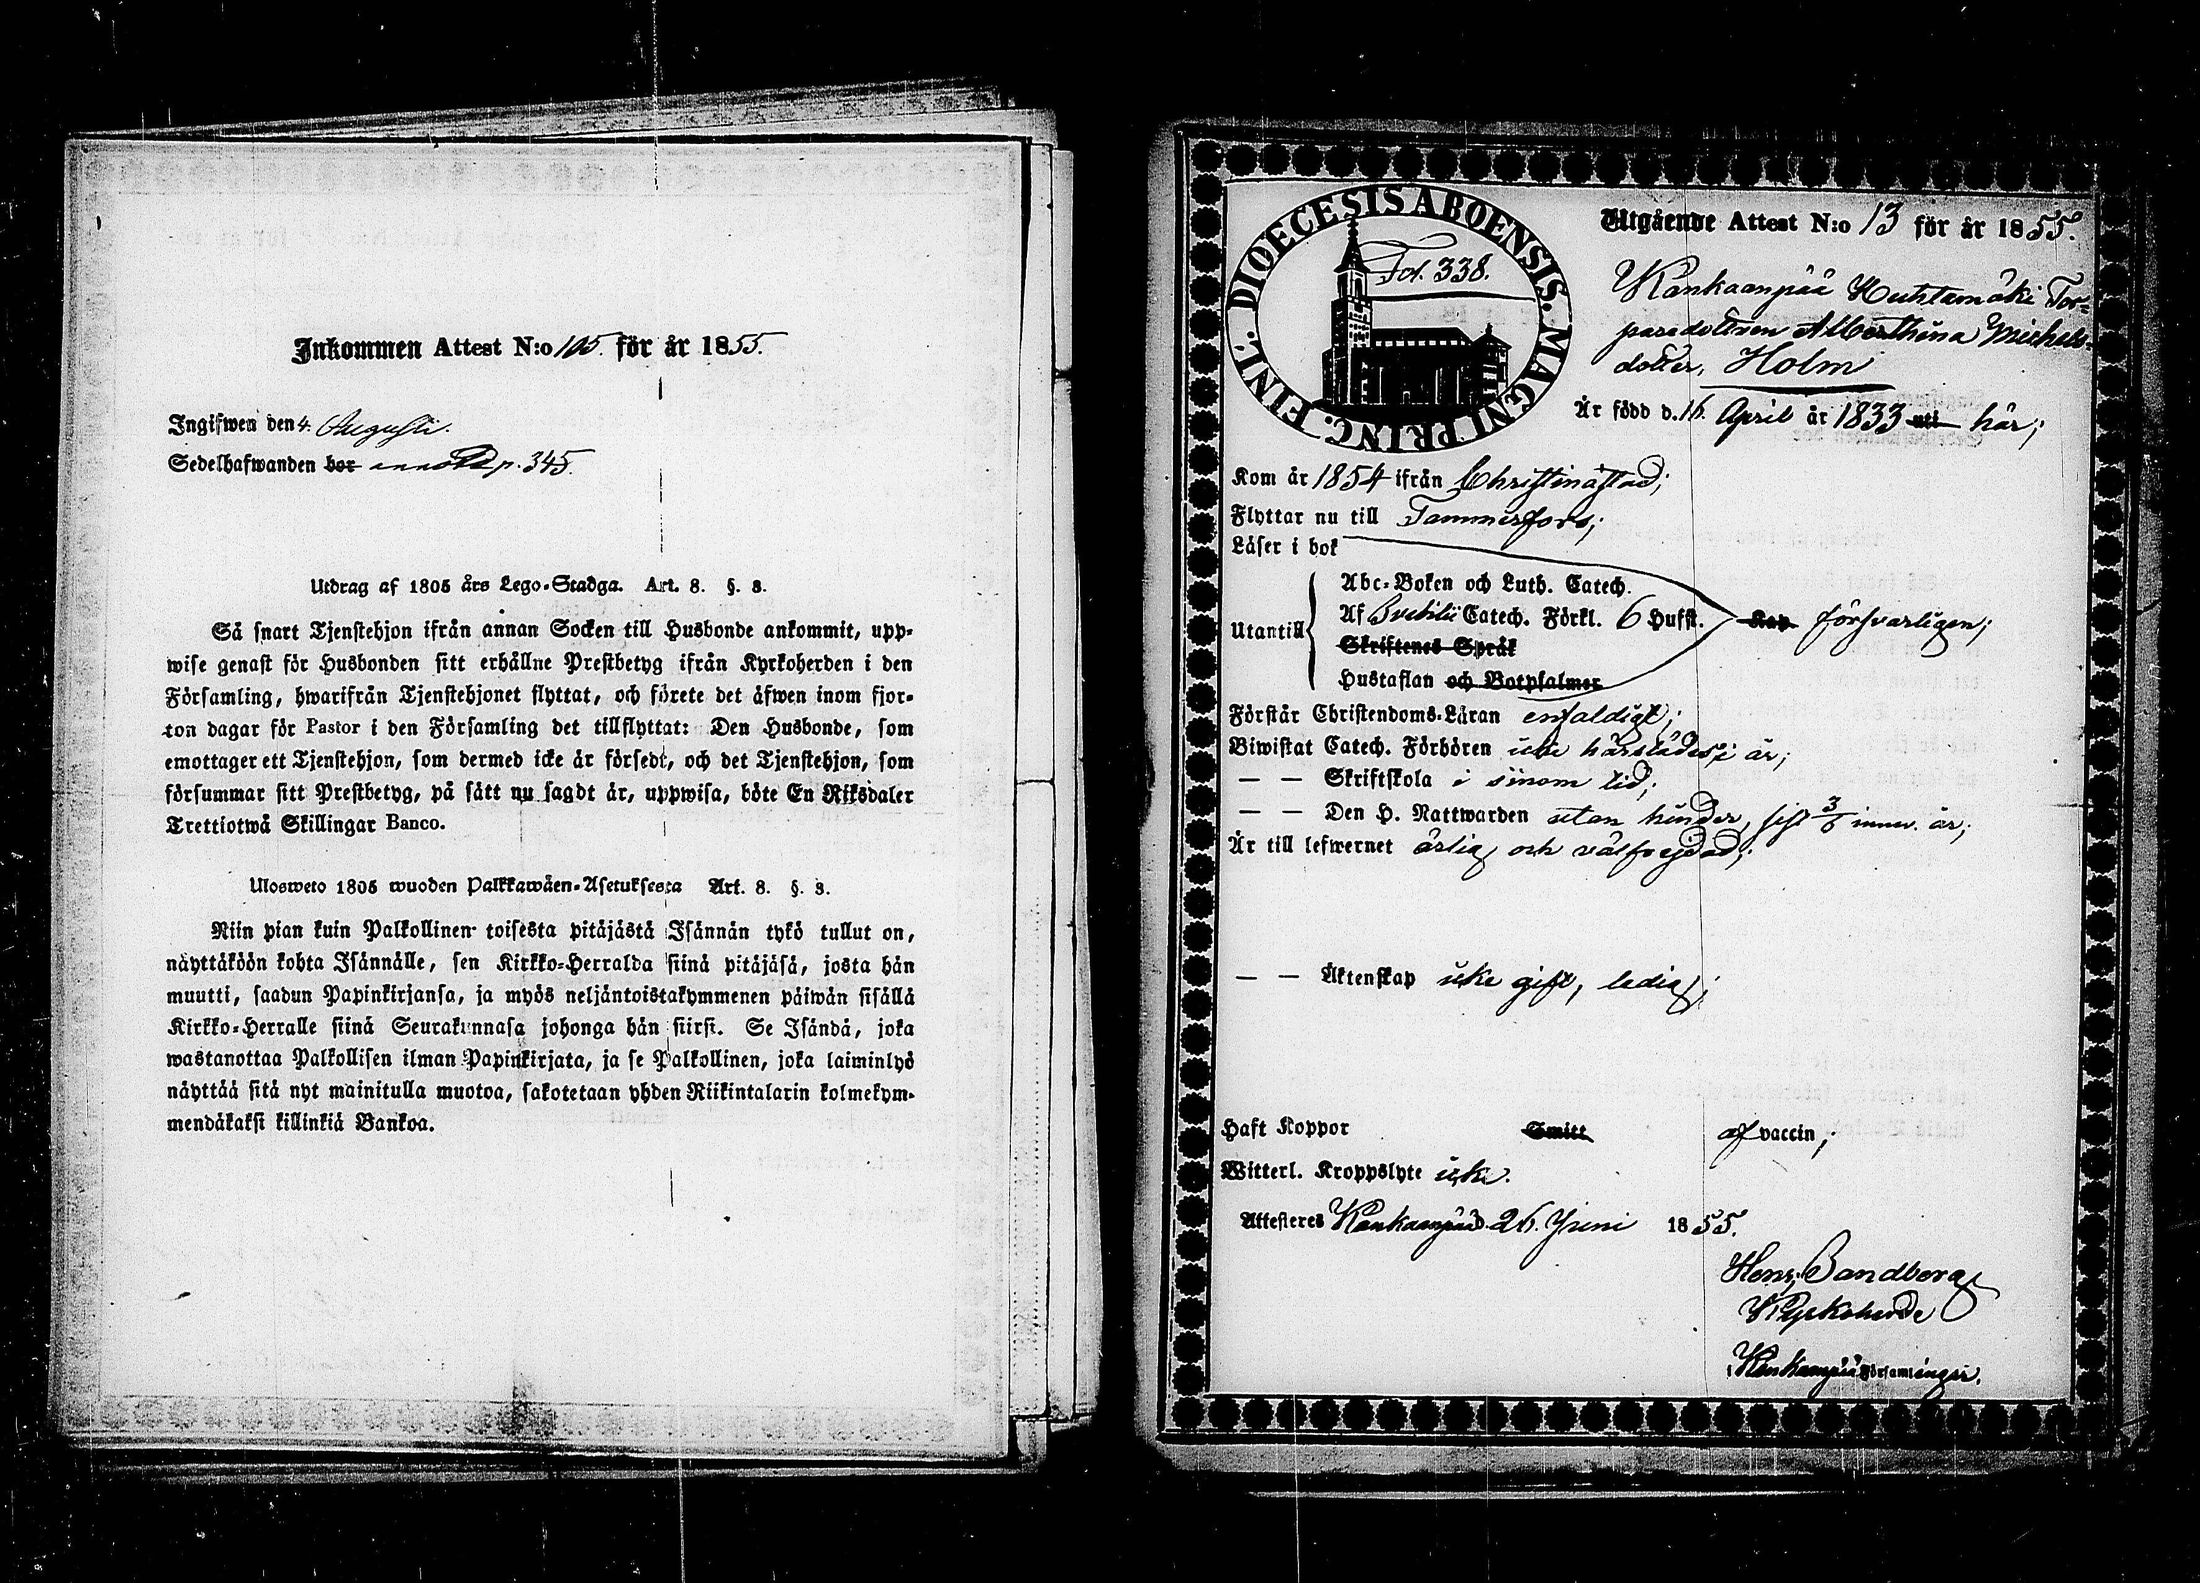 Inkommen Attest N:o 105. för år 1855.
Ingifwen den 4. Augusti.
Sedelhafwanden bor annotd p. 345.
Utdrag af 1805 års Lego-Stadga. Art. 8. §. 3.
Så snart Tjenstehjon ifrån annan Socken till Husbonde ankommit, upp-
wise genast för Husbonden sitt erhållne Prestbetyg ifrån Kyrkoherden i den
Församling, hwarifrån Tjenstehjonet flyttat, och förete det äfwen inom fjor-
ton dagar för Pastor i den Församling det tillflyttat: Den Husbonde, som
emottager ett Tjenstehjon, som dermed icke är försedt, och det Tjenstehjon, som
försummar sitt Prestbetyg, på sätt nu sagdt är, uppwisa, böte En Riksdaler
Trettiotwå Skillingar Banco.
Ulosweto 1805 wuoden Palkkawäen-Asetuksesta Art. 8. §. 3.
Niin pian kuin Palkollinen toisesta pitäjästä Isännän tykö tullut on,
näyttäköön kohta Isännälle, sen Kirkko-Herralda siinä pitäjäsä, josta hän
muutti, saadun Papinkirjansa, ja myös neljäntoistakymmenen päiwän sisällä
Kirkko-Herralle siinä Seurakunnasa johonga hän siirsi. Se Isändä, joka
wastanottaa Palkollisen ilman Papinkirjata, ja se Palkollinen, joka laiminlyö
näyttää sitä nyt mainitulla muotoa, sakotetaan yhden Riikintalarin kolmekym-
mendäkaksi killinkiä Bankoa.
DIOECESIS ABOENSIS. MAGNI PRINC. FINL.
Fol. 338.
Utgående Attest N:o 13 för år 1855.
Kankaanpää Huhtamäki Tor-
paredottren Alberthina Michels-
dotter, Holm
Är född d. 16. April år 1833 uti här;
Kom år 1854 ifrån Christinæstad;
Flyttar nu till Tammerfors;
Läser i bok
Utantill
Abc-Boken och Luth. Catech.
Af Svebilii Catech. Förkl. 6 Hufst. Kap försvarligen;
Skriftenes Språk
Hustaflan och Botpsalmer
Förstår Christendoms-Läran enfaldigt;
Biwistat Catech. Förhören icke härstädes i år;
— — Skriftskola i sinom tid;
— — Den H. Nattwarden utan hinder, sist 3/6 innev. år;
Är till lefwernet ärlig och välfregdad;
— — Äktenskap icke gift, ledig;
Haft Koppor Smitt af vaccin;
Witterl. Kroppslyte icke.
Attesteres Kankaanpää d. 26. Juni 1855.
Henr. Sandberg
Kyrkoherde
i Kankaanpää Församlingar.